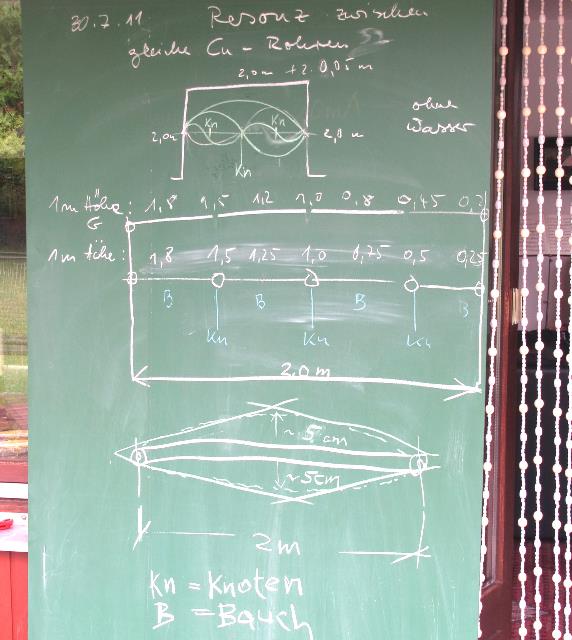 30.7.11 Resonz zwischen
gleiche Cu-Rohren
2,0m + 2.0,05m
ohne
Wasser
Kn Kn
2,0m 2,0m
Kn
1m Höhe: 1,8 1,5 1,2 1,0 0,8 0,45 0,2
G
1m Höhe: 1,8 1,5 1,25 1,0 0,75 0,5 0,25
B B B B
Kn Kn Kn
2.0m
~5cm
~5cm
2m
Kn = Knoten
B = Bauch